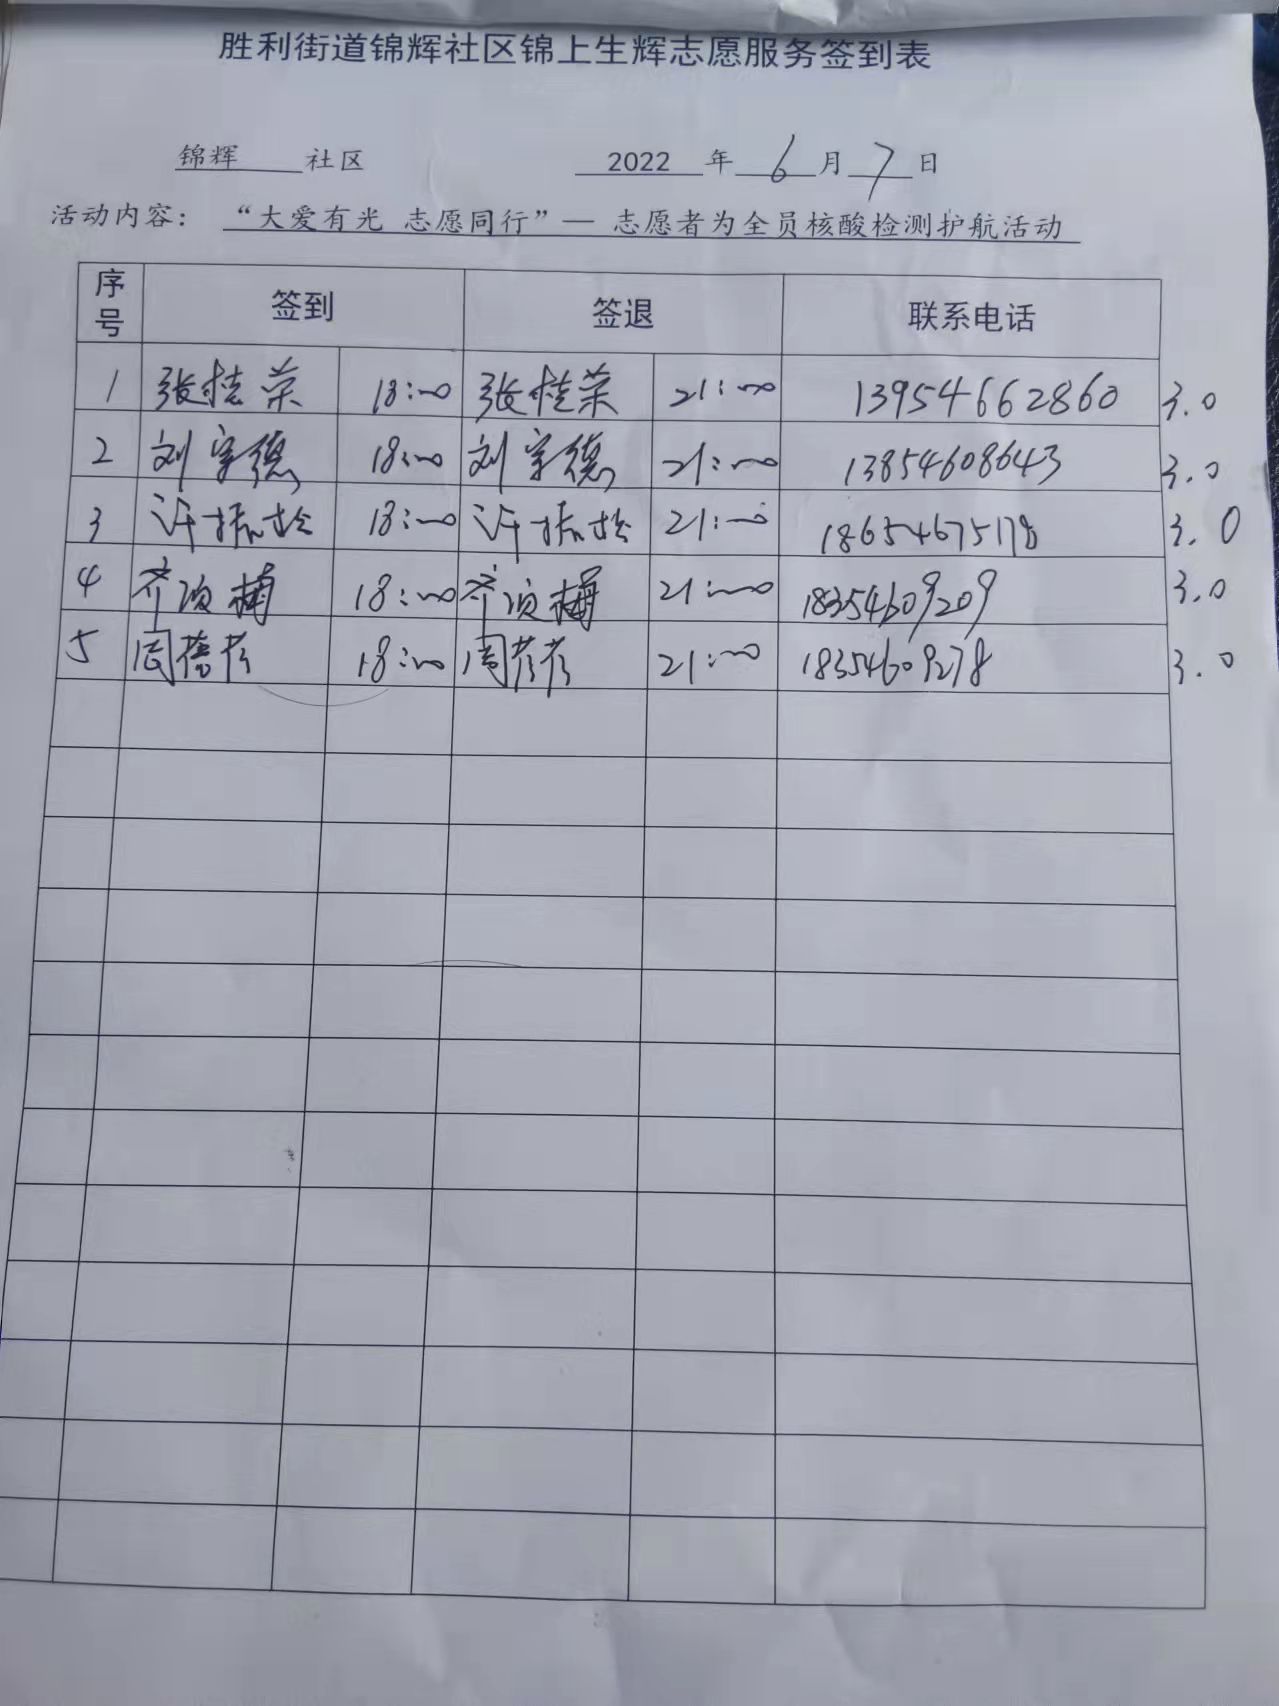 胜利街道锦辉社区锦上生辉志愿服务签到表
锦辉 社区 2022 年 6 月 7 日
活动内容： “大爱有光 志愿同行”— 志愿者为全员核酸检测护航活动
序号 签到 签退 联系电话
1 张桂荣 18:00 张桂荣 21:00 13954662860 3.0
2 刘宗德 18:00 刘宗德 21:00 13854608643 3.0
3 许振松 18:00 许振松 21:00 18654675178 3.0
4 齐 梅 18:00 齐 梅 21:00 18354609209 3.0
5 周 18:00 周 21:00 18354609278 3.0